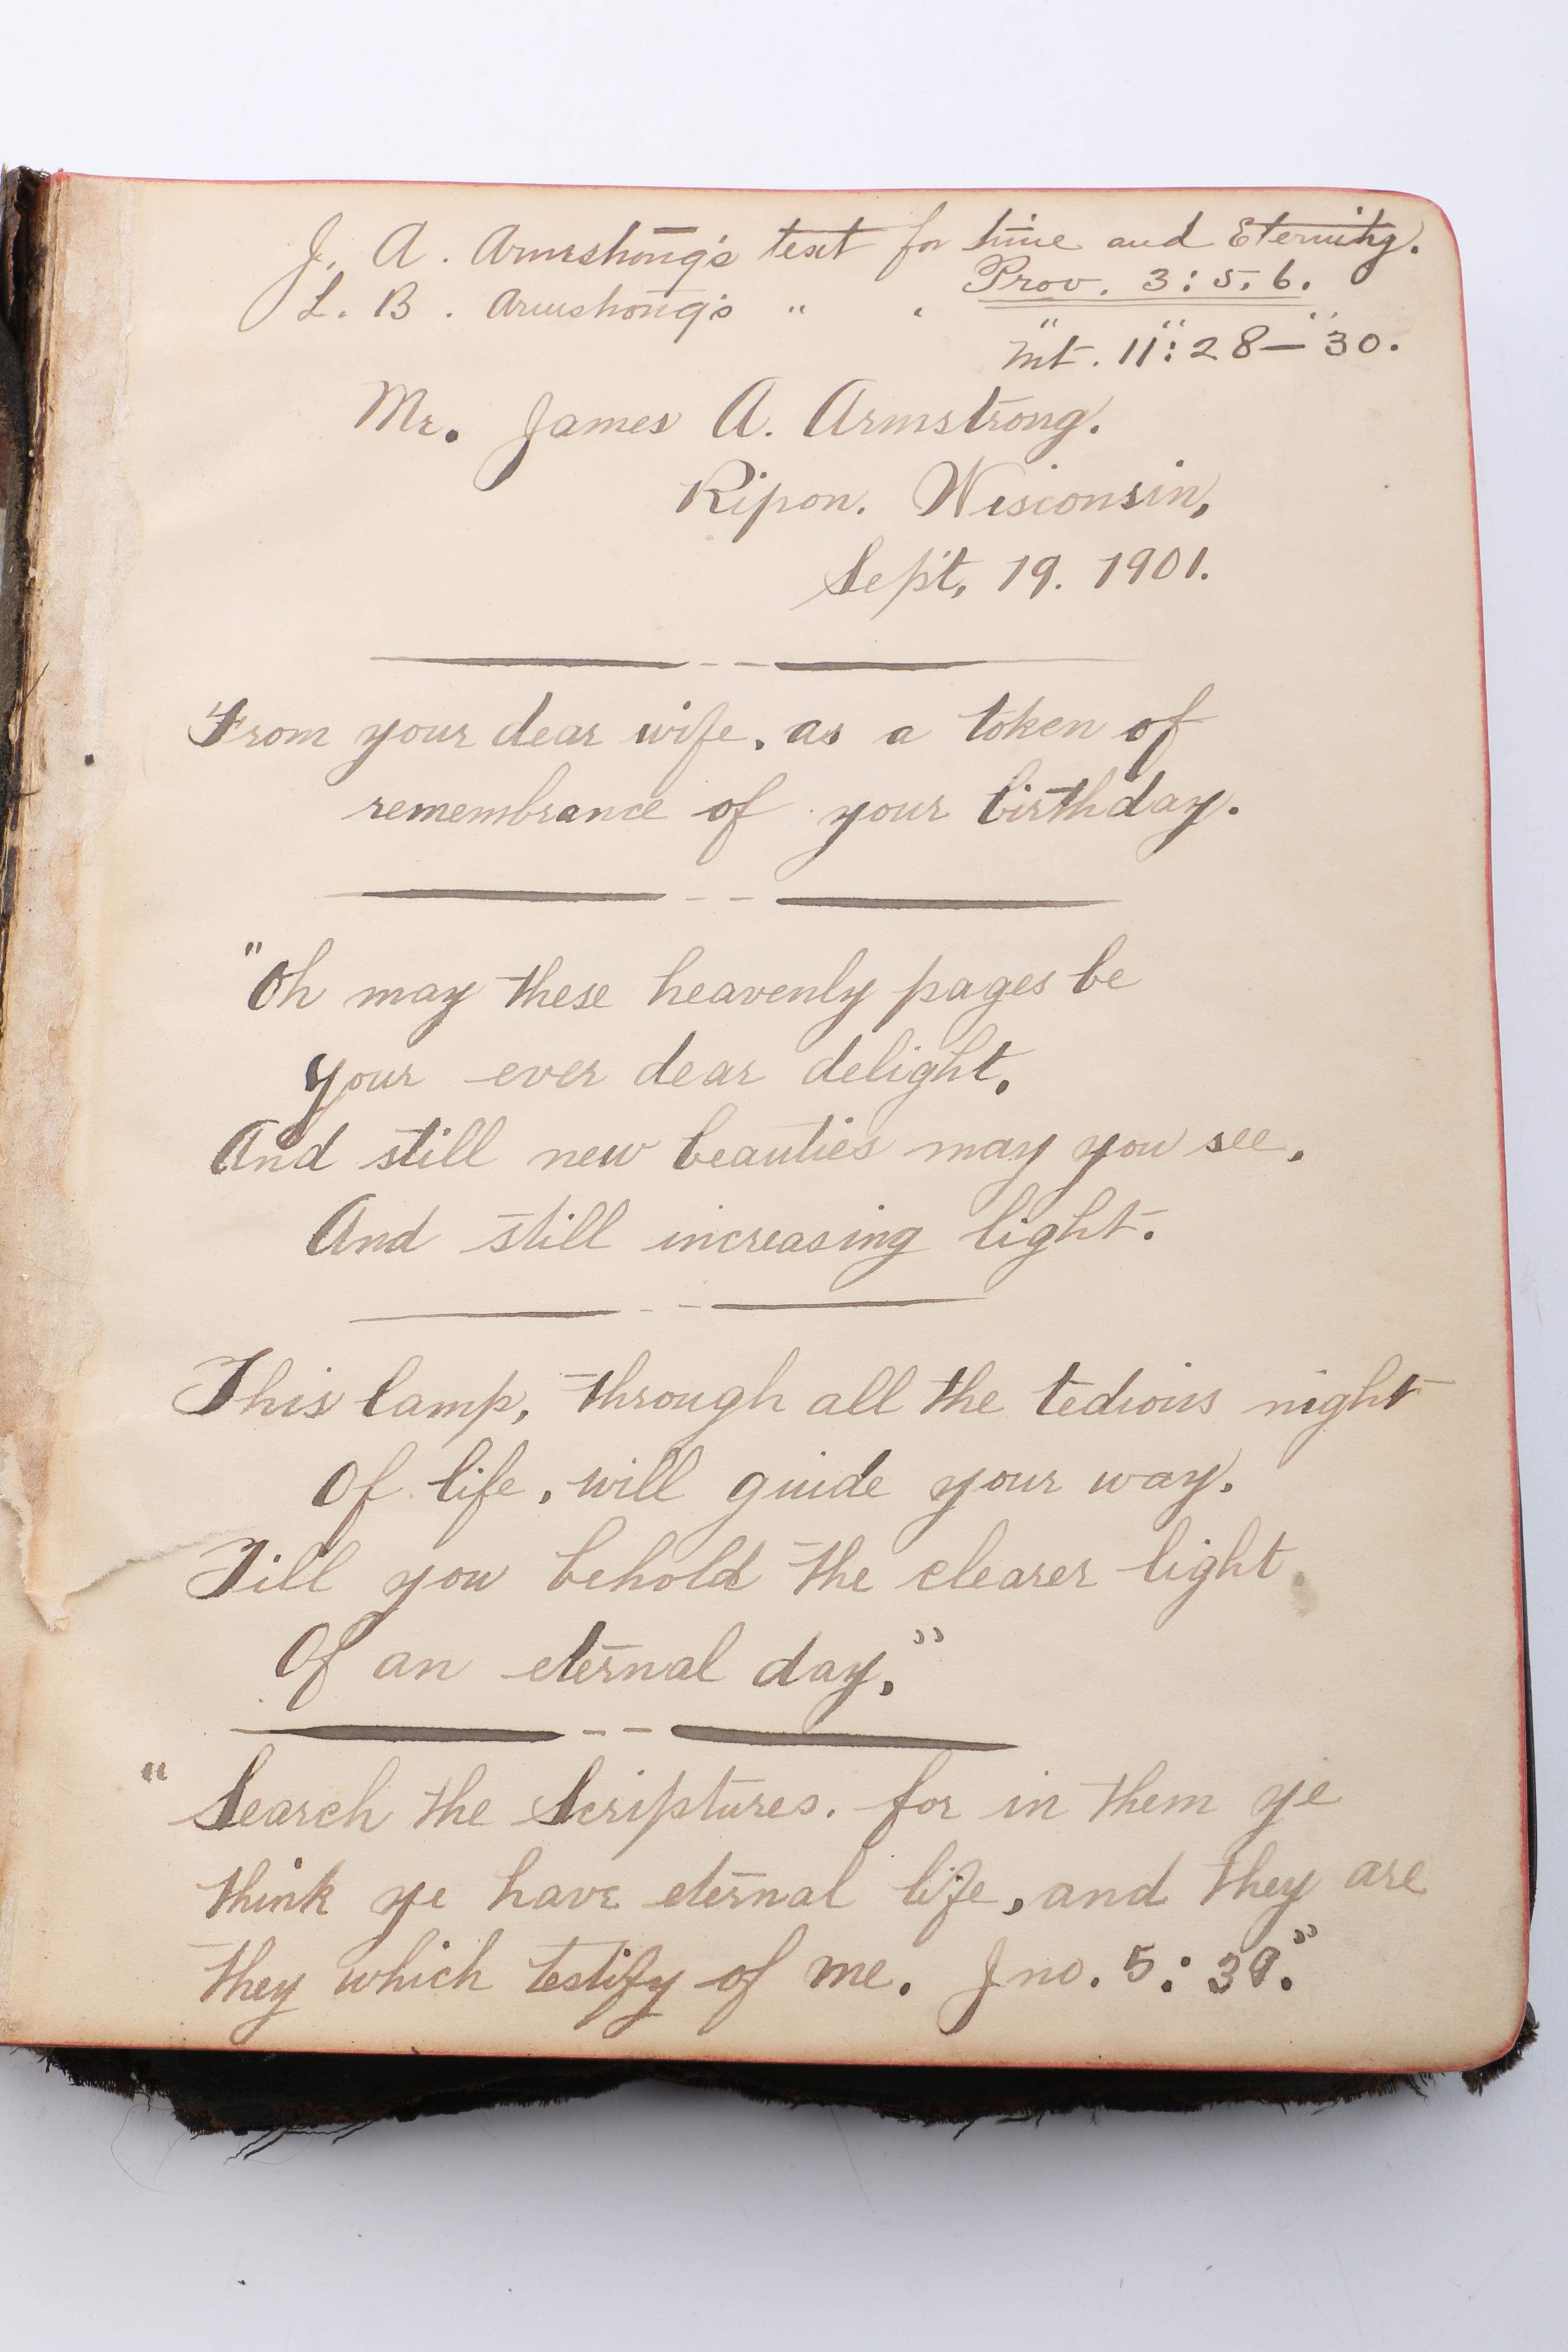 J. A. Armstrong's text for time and Eternity.
Prov. 3:5,6.
L. B. Armstrong's " " " " "
Mt. 11:28—30.
Mr. James A. Armstrong.
Ripon. Wisconsin,
Sept, 19. 1901.
From your dear wife, as a token of
remembrance of your birthday.
"Oh may these heavenly pages be
your ever dear delight,
And still new beauties may you see,
And still increasing light.
This lamp, through all the tedious night
Of life, will guide your way.
Till you behold the clearer light
Of an eternal day,"
"Search the Scriptures. for in them ye
think ye have eternal life, and they are
they which testify of me. Jno. 5:39."